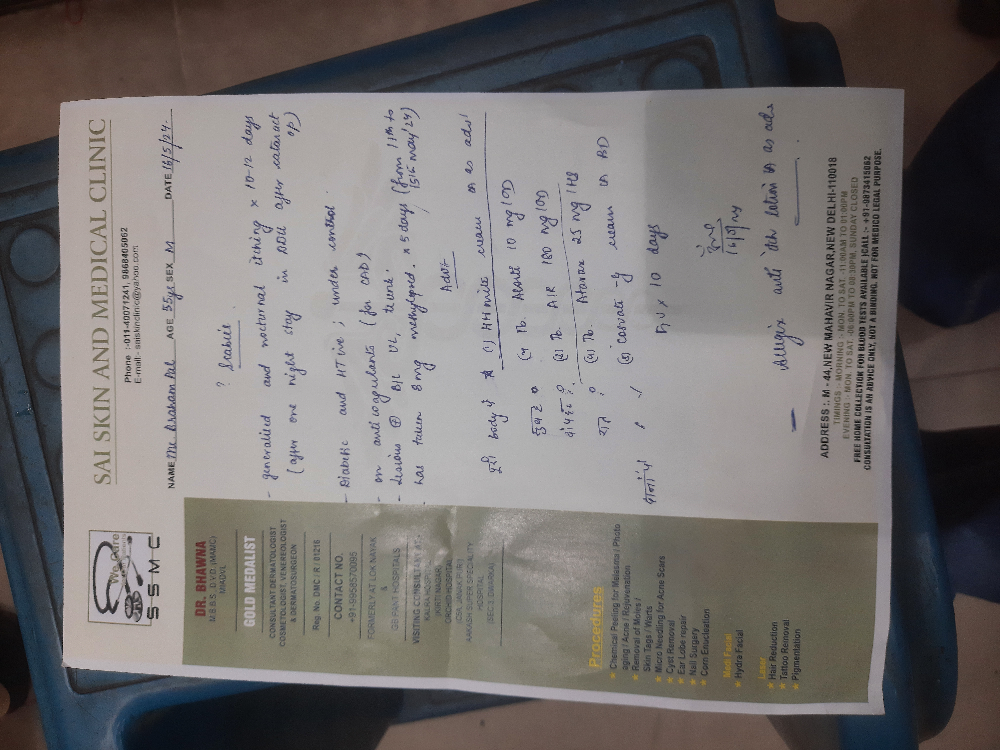 We Care
S S M C
SAI SKIN AND MEDICAL CLINIC
Phone :-011-40071241, 9868405062
E-mail - saiskinclinic@yahoo.com
NAME Mr AGE 55yrs SEX M DATE 16/5/24
DR. BHAWNA
M.B.B.S., D.V.D. (MAMC)
MIADVL
GOLD MEDALIST
CONSULTANT DERMATOLOGIST
COSMETOLOGIST, VENEREOLOGIST
& DERMATOSURGEON
Reg. No. DMC / R / 01216
CONTACT NO.
+91-9958570095
FORMERLY AT LOK NAYAK
&
GB PANT HOSPITALS
VISITING CONSULTANT AT
HOSPITAL
Procedures
Chemical Peeling for Melasma / Photo
aging / Acne / Rejuvenation
Removal of Moles /
Skin Tags / Warts
Micro Needling for Acne Scars
Cyst Removal
Ear Lobe repair
Nail Surgery
Corn Enucleation
Medi Facial
Hydra Facial
Laser
Hair Reduction
Tattoo Removal
Pigmentation
? Scabies
- generalised and nocturnal itching x 10-12 days
(after one night stay in DDU after cataract
op)
- Diabetic and HTive ; under control
- on anticoagulants (for CAD)
- lesions B/L UL, trunk
- has taken 8 mg methylpred x 5 days (from 11th to
15th May/24)
Adv
(1) cream as adv
(2) Tb. 10 mg 1OD
(3) Tb. AIR 180 mg 1OD
(4) Tb. Atarax 25 mg 1HS
(5) cosvate cream BD
x 10 days
16/5/24
anti itch lotion as adv
ADDRESS :. M - 44,NEW MAHAVIR NAGAR,NEW DELHI-110018
TIMINGS - MORNING :- MON. TO SAT.-11:00AM TO 01:00PM
EVENING :- MON. TO SAT. -06:00PM TO 08:30PM, SUNDAY CLOSED
FREE HOME COLLECTION FOR BLOOD TESTS AVAILABLE (CALL :- +91-9873415062
CONSULTATION IS AN ADVICE ONLY, NOT A BINDING. NOT FOR MEDICO LEGAL PURPOSE.